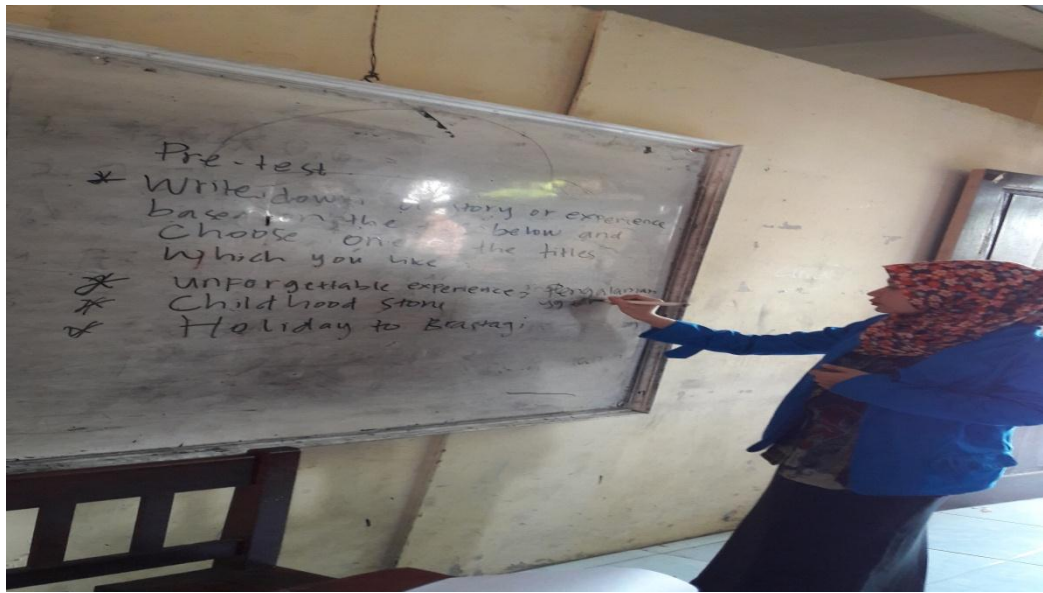 Pre-test
* Write down story or experience
based on the below and
Choose one the titles
Which you like
* UNForgettable experience; Pengalaman
* Childhood Story yg
* Holiday to Brastagi